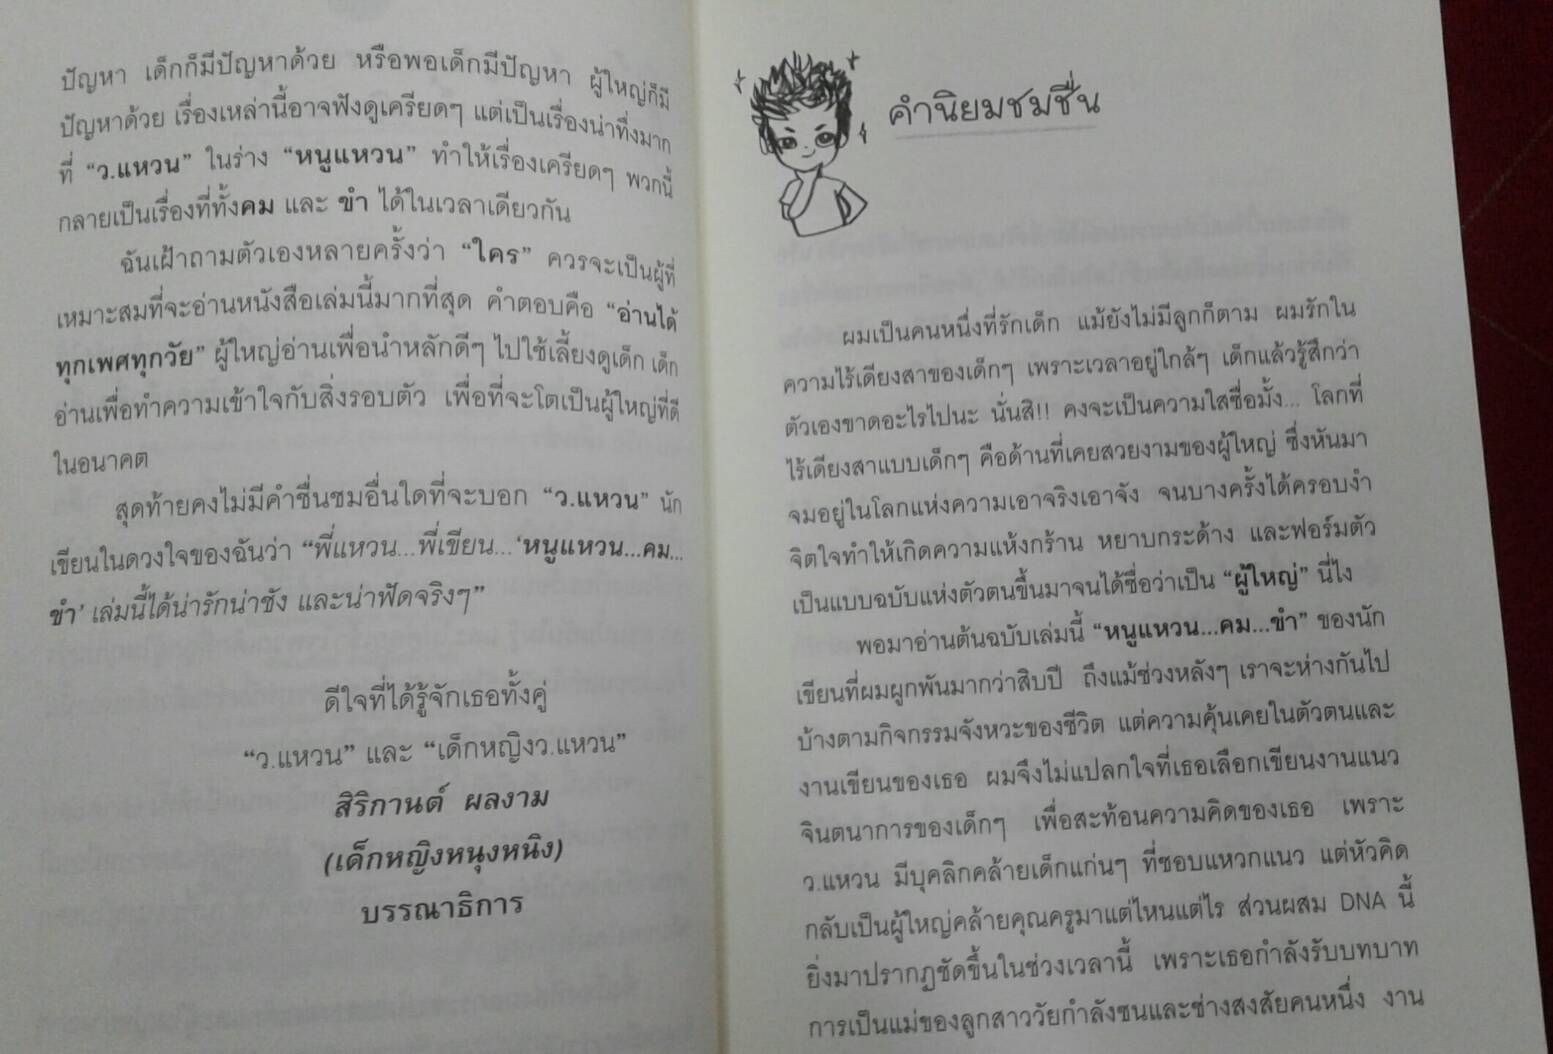 ปัญหา เด็กก็มีปัญหาด้วย หรือพอเด็กมีปัญหา ผู้ใหญ่ก็มี
ปัญหาด้วย เรื่องเหล่านี้อาจฟังดูเครียดๆ แต่เป็นเรื่องน่าทึ่งมาก
ที่ “ว.แหวน” ในร่าง “หนูแหวน” ทำให้เรื่องเครียดๆ พวกนี้
กลายเป็นเรื่องที่ทั้งคม และ ขำ ได้ในเวลาเดียวกัน
ฉันเฝ้าถามตัวเองหลายครั้งว่า “ใคร” ควรจะเป็นผู้ที่
เหมาะสมที่จะอ่านหนังสือเล่มนี้มากที่สุด คำตอบคือ “อ่านได้
ทุกเพศทุกวัย” ผู้ใหญ่อ่านเพื่อนำหลักดีๆ ไปใช้เลี้ยงดูเด็ก เด็ก
อ่านเพื่อทำความเข้าใจกับสิ่งรอบตัว เพื่อที่จะโตเป็นผู้ใหญ่ที่ดี
ในอนาคต
สุดท้ายคงไม่มีคำชื่นชมอื่นใดที่จะบอก “ว.แหวน” นัก
เขียนในดวงใจของฉันว่า “พี่แหวน...พี่เขียน...‘หนูแหวน...คม...
ขำ’ เล่มนี้ได้น่ารักน่าชัง และน่าฟัดจริงๆ”
ดีใจที่ได้รู้จักเธอทั้งคู่
“ว.แหวน” และ “เด็กหญิงว.แหวน”
สิริกานต์ ผลงาม
(เด็กหญิงหนุงหนิง)
บรรณาธิการ
คำนิยมชมชื่น
ผมเป็นคนหนึ่งที่รักเด็ก แม้ยังไม่มีลูกก็ตาม ผมรักใน
ความไร้เดียงสาของเด็กๆ เพราะเวลาอยู่ใกล้ๆ เด็กแล้วรู้สึกว่า
ตัวเองขาดอะไรไปนะ นั่นสิ!! คงจะเป็นความใสซื่อมั้ง... โลกที่
ไร้เดียงสาแบบเด็กๆ คือด้านที่เคยสวยงามของผู้ใหญ่ ซึ่งหันมา
จมอยู่ในโลกแห่งความเอาจริงเอาจัง จนบางครั้งได้ครอบงำ
จิตใจทำให้เกิดความแห้งกร้าน หยาบกระด้าง และฟอร์มตัว
เป็นแบบฉบับแห่งตัวตนขึ้นมาจนได้ชื่อว่าเป็น “ผู้ใหญ่” นี่ไง
พอมาอ่านต้นฉบับเล่มนี้ “หนูแหวน...คม...ขำ” ของนัก
เขียนที่ผมผูกพันมากว่าสิบปี ถึงแม้ช่วงหลังๆ เราจะห่างกันไป
บ้างตามกิจกรรมจังหวะของชีวิต แต่ความคุ้นเคยในตัวตนและ
งานเขียนของเธอ ผมจึงไม่แปลกใจที่เธอเลือกเขียนงานแนว
จินตนาการของเด็กๆ เพื่อสะท้อนความคิดของเธอ เพราะ
ว.แหวน มีบุคลิกคล้ายเด็กแก่นๆ ที่ชอบแหวกแนว แต่หัวคิด
กลับเป็นผู้ใหญ่คล้ายคุณครูมาแต่ไหนแต่ไร ส่วนผสม DNA นี้
ยิ่งมาปรากฏชัดขึ้นในช่วงเวลานี้ เพราะเธอกำลังรับบทบาท
การเป็นแม่ของลูกสาววัยกำลังซนและช่างสงสัยคนหนึ่ง งาน